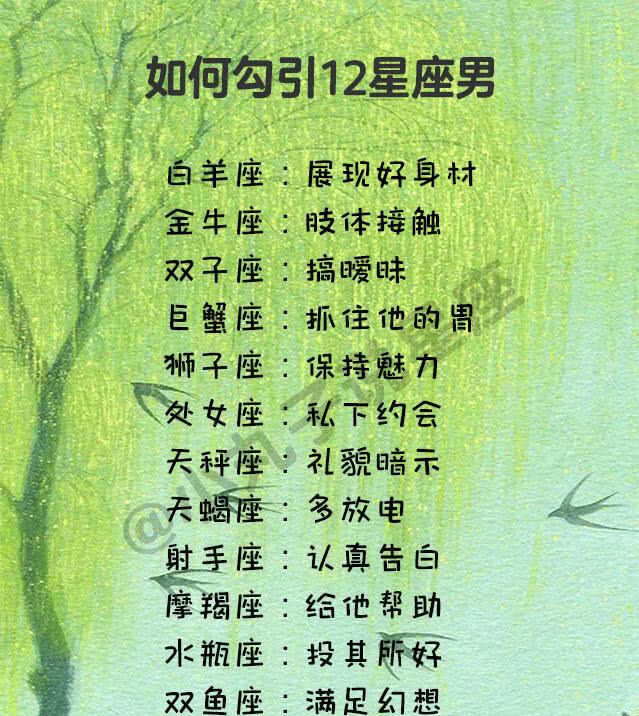 如何勾引12星座男
白羊座：展现好身材
金牛座：肢体接触
双子座：搞暧昧
巨蟹座：抓住他的胃
狮子座：保持魅力
处女座：私下约会
天秤座：礼貌暗示
天蝎座：多放电
射手座：认真告白
摩羯座：给他帮助
水瓶座：投其所好
双鱼座：满足幻想